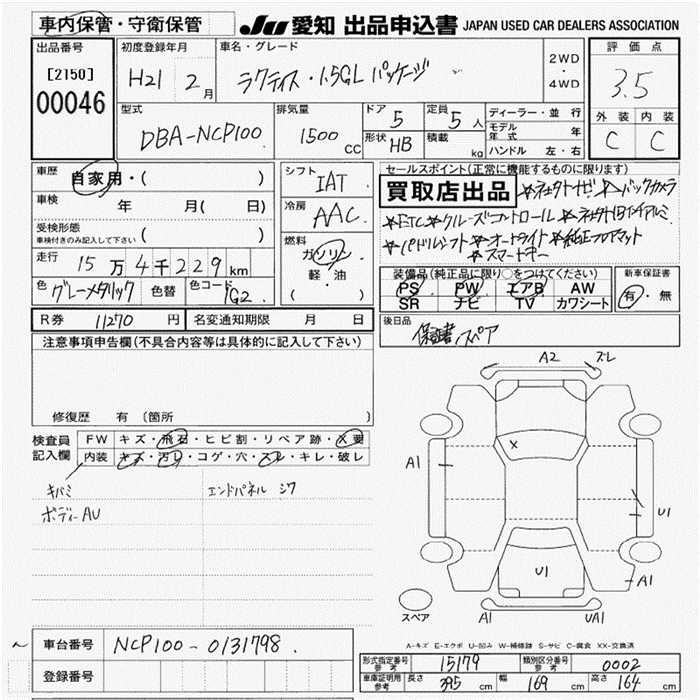 車内保管・守衛保管 JU 愛知 出品申込書 JAPAN USED CAR DEALERS ASSOCIATION
出品番号 初度登録年月 車名・グレード 2WD・4WD 評価点
[2150] H21 2月 ラクティス・1.5GL パッケージ 3.5
00046
型式 排気量 ドア 5 定員 5人 ディーラー・並行 外装 内装
DBA-NCP100 1500cc 形状 HB 積載 kg モデル年式 年 C C
ハンドル 左・右
車歴 自家用・( )
シフト IAT
セールスポイント(正常に機能するものに限ります)
車検 年 月( 日)
冷房 AAC
買取店出品 バックカメラ
受検形態 車検付きのみ記入して下さい ( )
☆ETC☆クルーズコントロール
燃料 ガソリン・軽・油 ( )
☆パドルシフト☆オートライト☆純正フロアマット
☆スマートキー
走行 15万4千229km
装備品(純正品に限り○をつけてください) 新車保証書
PS PW エアB AW 有・無
SR ナビ TV カワシート
色 グレーメタリック 色替 色コード 1G2
R券 11270円 名変通知期限 月 日
後日品 保証書 スペア
注意事項申告欄(不具合内容等は具体的に記入して下さい)
修復歴 有 (箇所 )
A2 ズレ
検査員記入欄 FW キズ・飛石・ヒビ割・リペア跡・X要
内装 キズ・汚レ・コゲ・穴・スレ・キレ・破レ
X
A1
キバミ エンドパネル シワ
ボディーAU
U1
U1
A1
スペア A1 UA1
A-キズ E-エクボ U-凹み W-補修跡 S-サビ C-腐食 XX-交換済
車台番号 NCP100-0131798
登録番号
形式指定番号 参考 15179 類別区分番号 参考 0002
車庫証明用 参考 長さ 395cm 幅 169cm 高さ 164cm